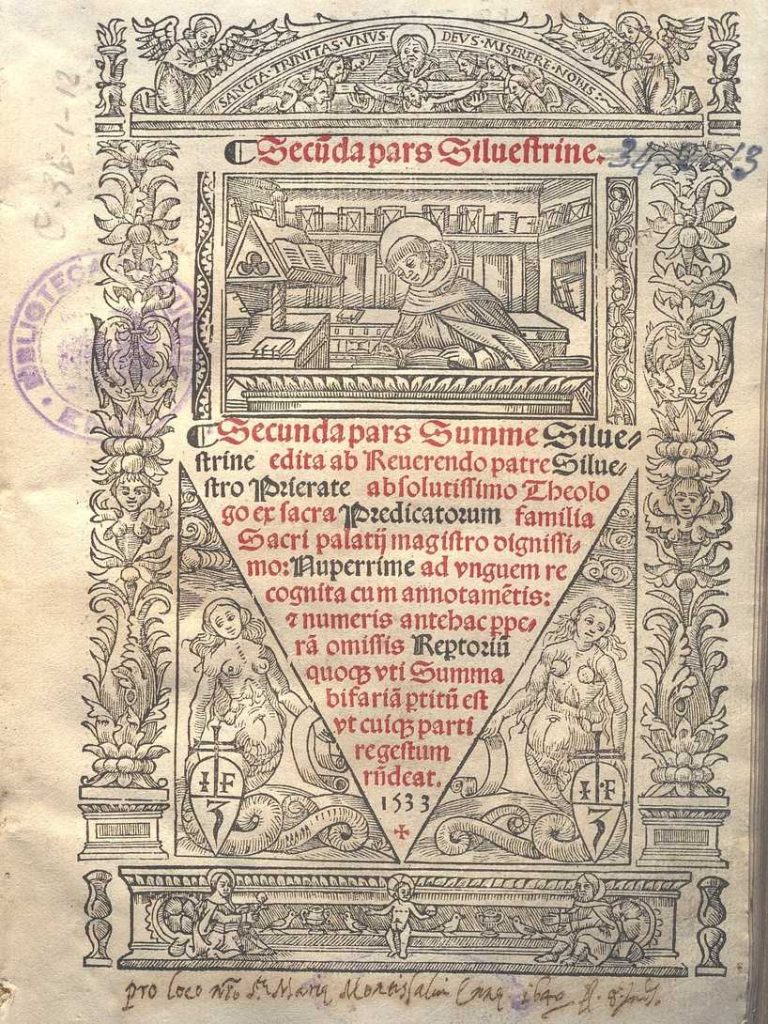 SANCTA·TRINITAS·VNUS DEVS·MISERERE·NOBIS:
Secūda pars Siluestrine.
BIBLIOTECA
Secunda pars Summe Silue⸗
strine edita ab Reuerendo patre Silue⸗
stro Prierate absolutissimo Theolo
go ex sacra Predicatorum familia
Sacri palatij magistro dignissi⸗
mo: Nuperrime ad vnguem re
cognita cum annotamētis:
⁊ numeris antehac ꝑpe⸗
rā omissis Reꝑtoriū
quoqꝫ vti Summa
bifariā ꝑtitū est
vt cuiqꝫ parti
regestum
rn̄deat.
1533
I F
3
I·F
3
pro loco nr̃o